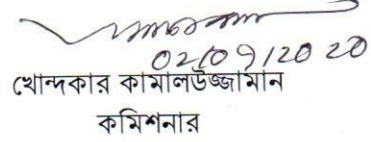 02/09/2020
খোন্দকার কামালউজ্জামান
কমিশনার